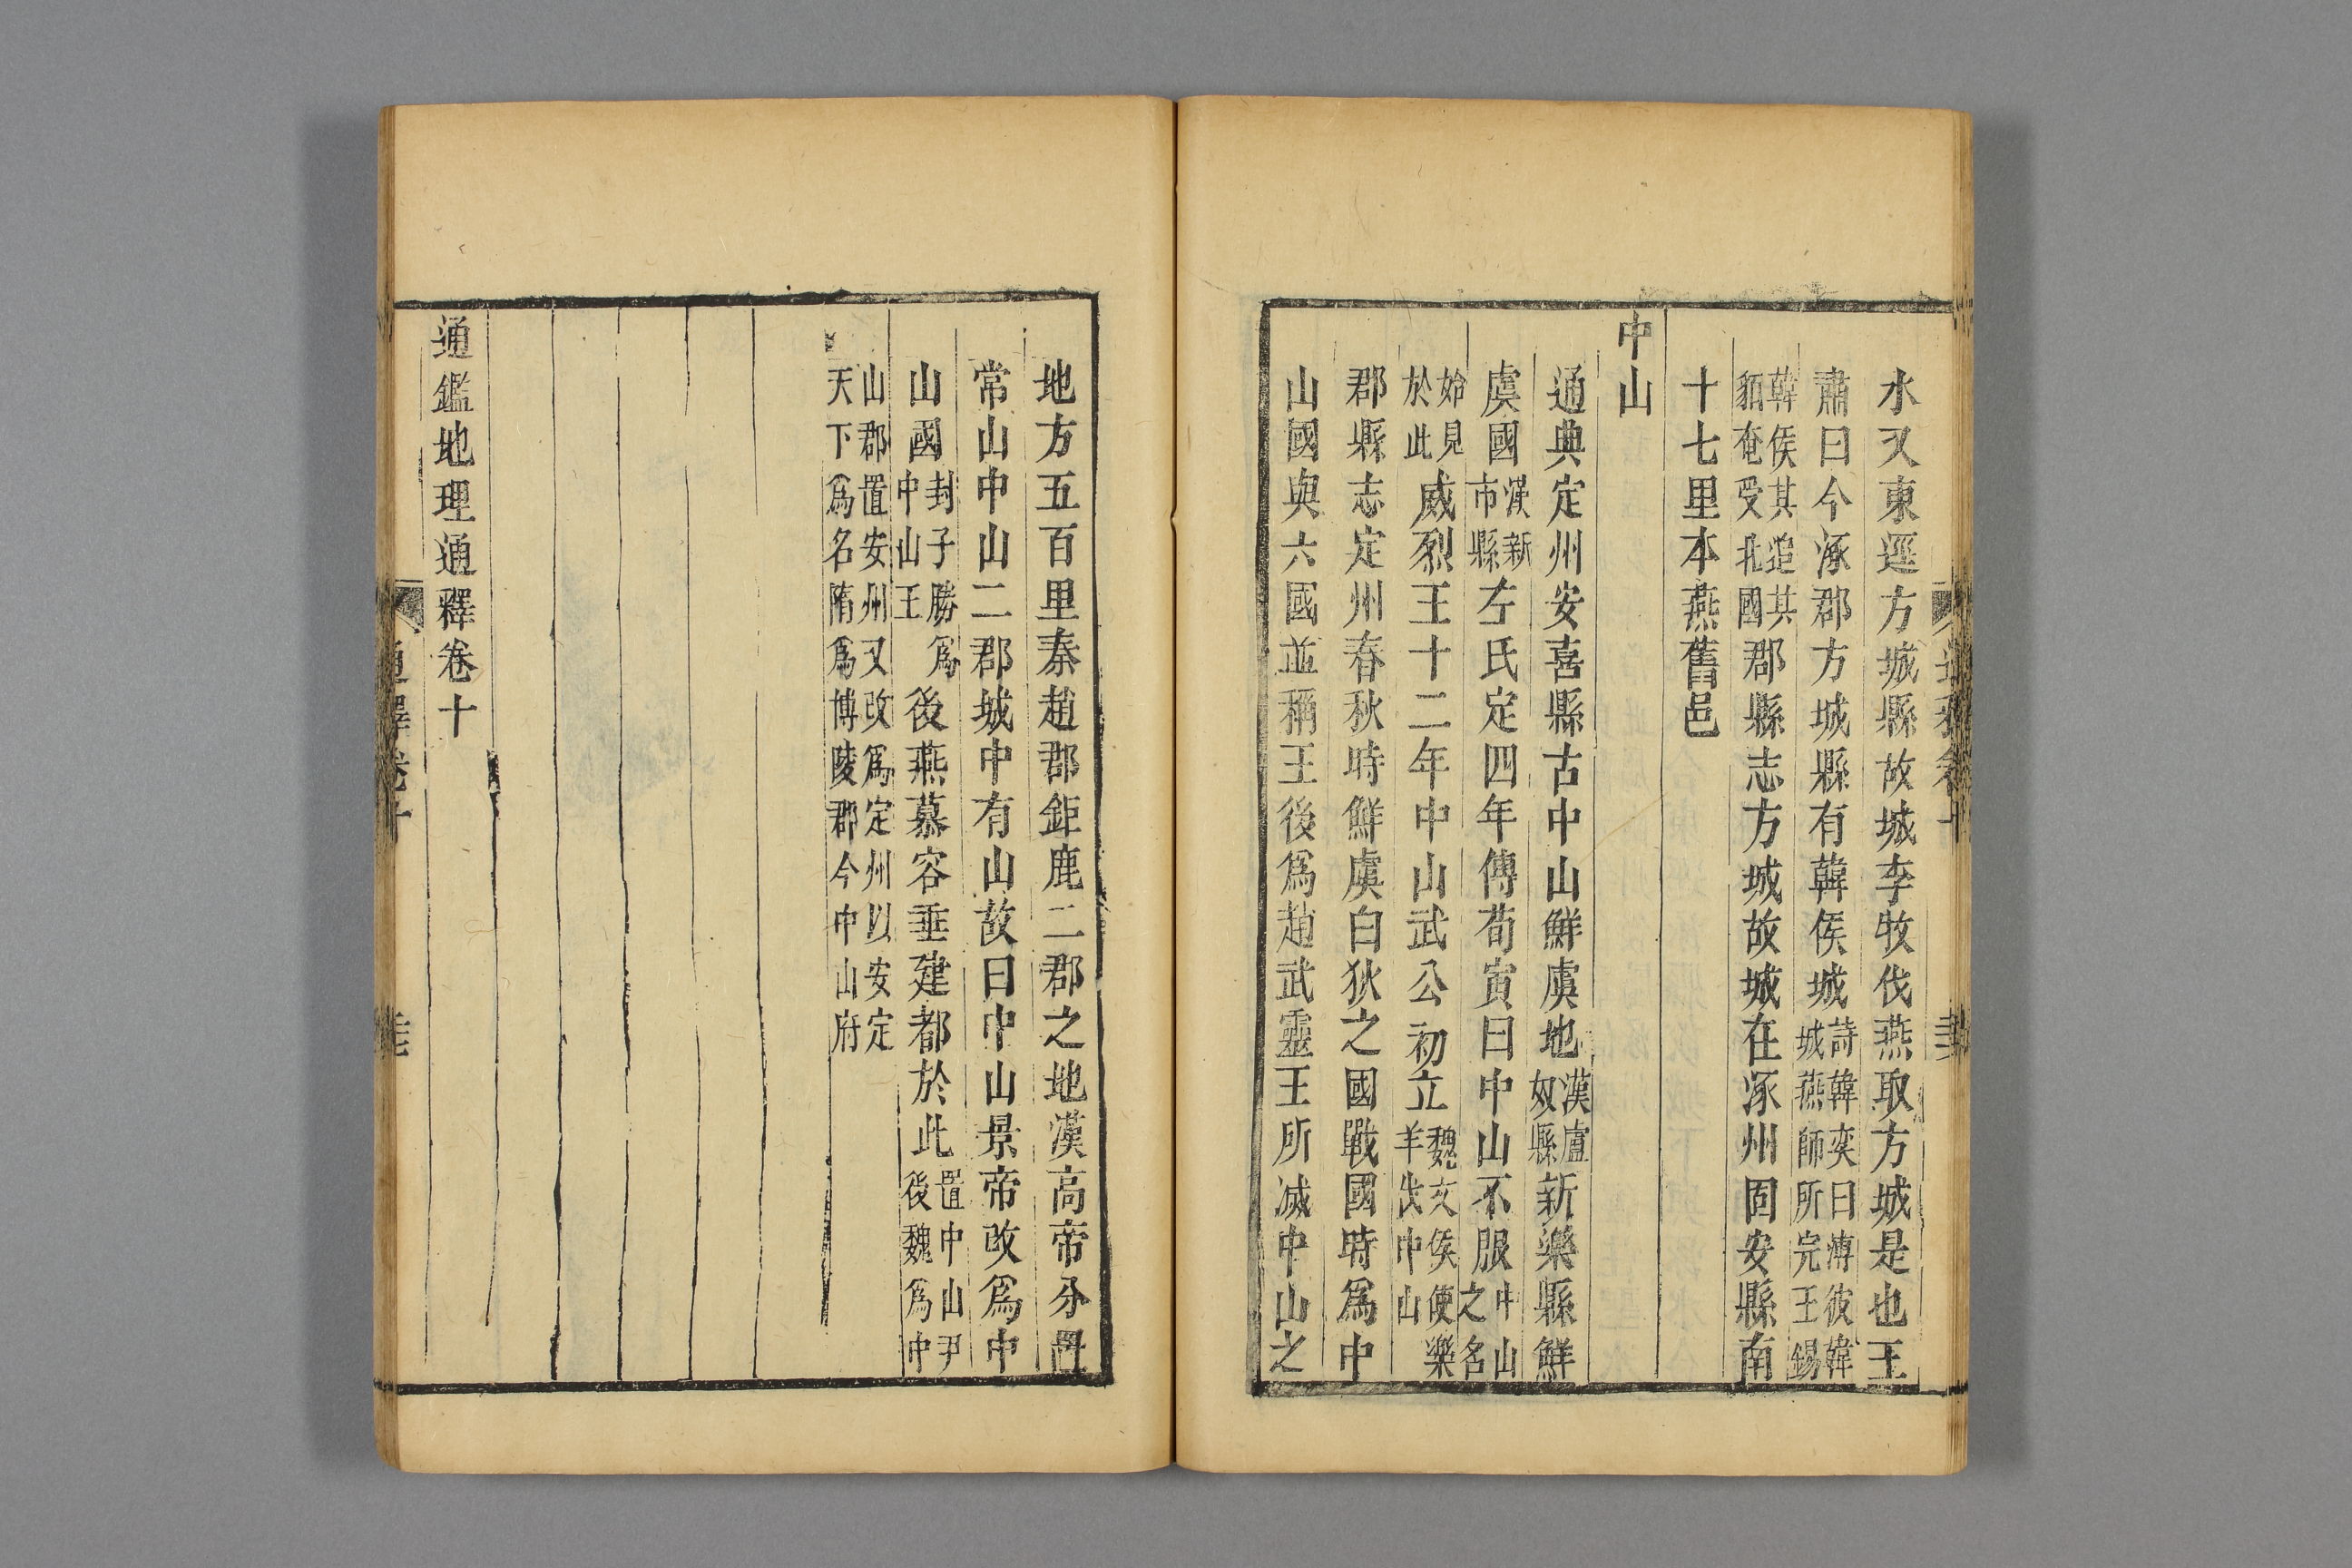 水又東逕方城縣故城李牧伐燕取方城是也王
肅曰今涿郡方城縣有韓侯城詩韓奕曰溥彼韓城燕師所完王錫
韓侯其追其貊奄受北國郡縣志方城故城在涿州固安縣南
十七里本燕舊邑
中山
通典定州安喜縣古中山鮮虞地漢盧奴縣新樂縣鮮
虞國漢新市縣左氏定四年傳荀寅曰中山不服中山之名
始見於此威烈王十二年中山武公初立魏文侯使樂羊伐中山
郡縣志定州春秋時鮮虞白狄之國戰國時爲中
山國與六國並稱王後爲趙武靈王所滅中山之
地方五百里秦趙郡鉅鹿二郡之地漢高帝分置
常山中山二郡城中有山故曰中山景帝改爲中
山國封子勝爲中山王後燕慕容垂建都於此置中山尹後魏爲中
山郡置安州又改爲定州以安定天下爲名隋爲博陵郡今中山府
通鑑地理通釋卷十
通釋卷十